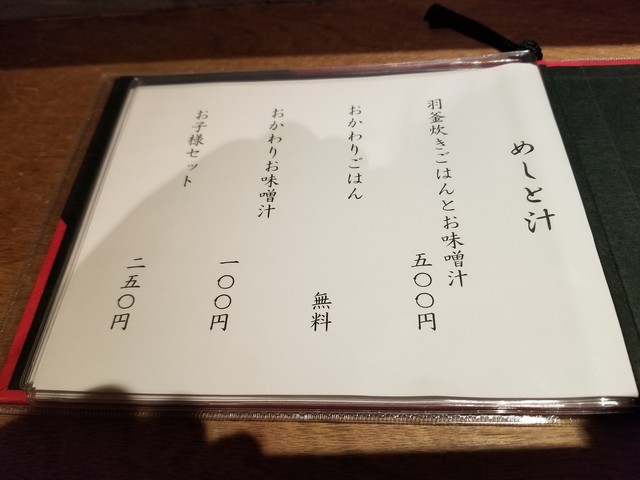 めしと汁
羽釜炊きごはんとお味噌汁
五〇〇円
おかわりごはん
無料
おかわりお味噌汁
一〇〇円
お子様セット
二五〇円